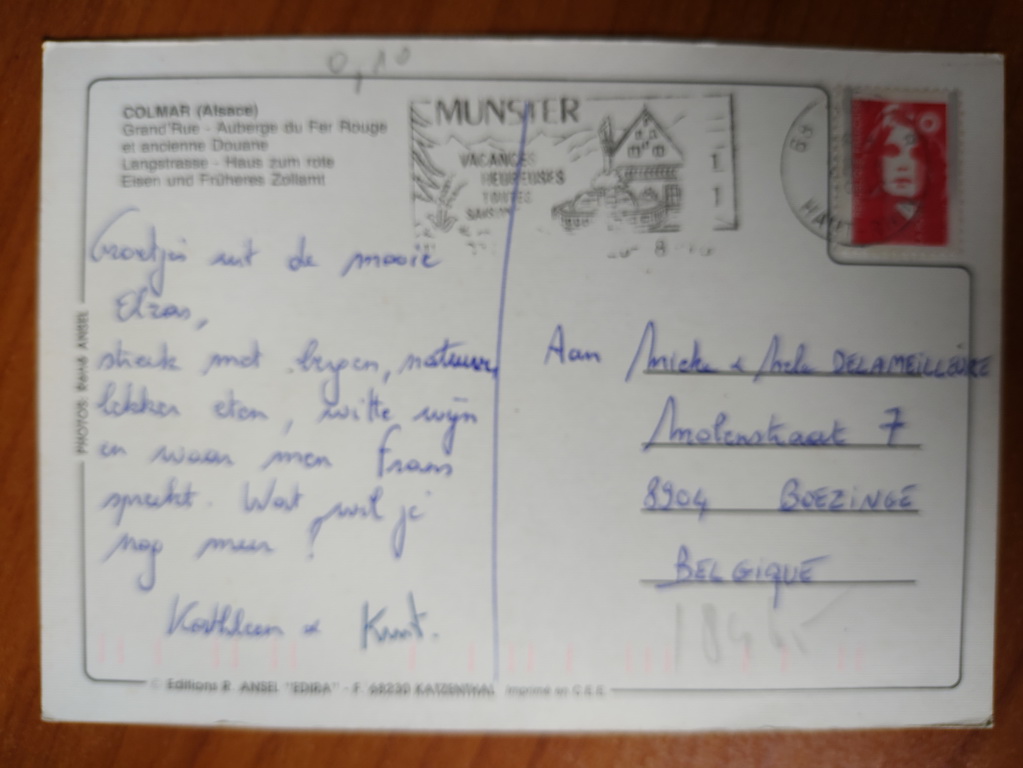 0,10
COLMAR (Alsace)
Grand'Rue - Auberge du Fer Rouge
et ancienne Douane
Langstrasse - Haus zum rote
Eisen und Früheres Zollamt
MUNSTER
VACANCES
HEUREUSES
TOUTES
SAISONS
68
HAUT
Groetjes uit de mooie
Elzas,
streek met bergen, natuur,
lekker eten, witte wijn
en waar men Frans
spreekt. Wat wil je
nog meer!
Kathleen & Kurt.
Aan Mieke & DELAMEILLEURE
Molenstraat 7
8904 BOEZINGE
BELGIQUE
PHOTOS: René ANSEL
Editions R. ANSEL "EDIRA" - F. 68230 KATZENTHAL Imprimé en C.E.E.